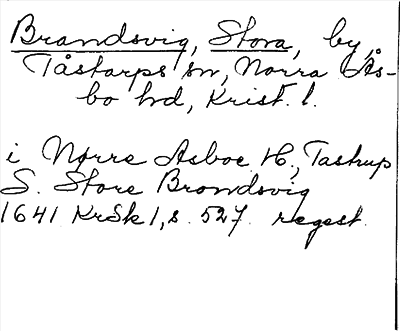 Brandsvig, Stora, by,
Tåstarps sn, Norra Ås-
bo hd, Krist. l.
i Nørre Asboe H., Tastrup
S. Store Brondsvig
1641 KrSk 1, s. 527. regest.